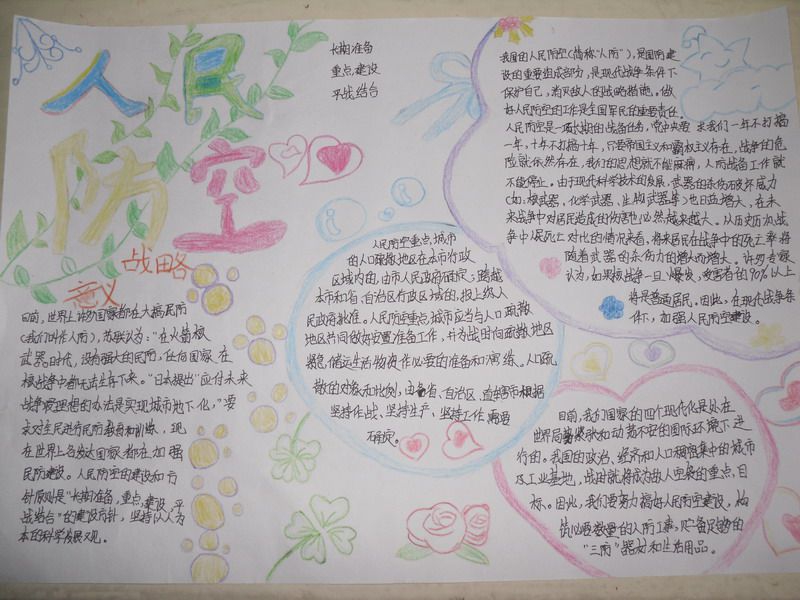 人民
防空
战略
意义
长期准备
重点建设
平战结合
目前,世界上许多国家都在大搞民防
(我们叫作人防),苏联认为:"在火箭核
武器时代,没有强大的民防,任何国家在
核战争中都无法生存下来。"日本提出"应付未来
战争最理想的办法是实现城市地下化,"要
求对全民进行民防教育和训练,现
在世界上各发达国家都在加强
民防建设。人民防空的建设和方
针原则是"长期准备,重点建设,平
战结合"的建设方针,坚持以人为
本的科学发展观。
人民防空重点,城市
的人口疏散地区在本市行政
区域内的,由市人民政府确定;跨越
本市和省、自治区行政区域的,报上级人
民政府批准。人民防空重点,城市应当与人口疏散
地区共同做好安置准备工作,并为战时向疏散地区
紧急储运生活物资作必要的准备和演练。人口疏
散的对象和比例,由各省、自治区、直辖市根据
坚持作战、坚持生产,坚持工作需要
确定。
我国的人民防空(简称"人防"),是国防建
设的重要组成部分,是现代战争条件下
保护自己,消灭敌人的战略措施。做
好人民防空的工作是全国军民的重要责任。
人民防空是一项长期的战备任务,党中央要求我们一年不打搞
一年,十年不打搞十年,只要帝国主义和霸权主义存在,战争的危
险就依然存在,我们的思想就不能麻痹,人防战备工作就
不能停止。由于现代科学技术的发展,武器的杀伤破坏威力
(如:核武器,化学武器、生物武器等)也日益增大,在未
来战争中对居民造成的伤害也必然越来越大。从历次战
争中居民死亡对比的情况来看,将来居民在战争中的死亡率将
随着武器的杀伤力的增大而增大。许多专家
认为,如果核战争一旦爆发,受害者的90%以上
将是普通居民。因此,在现代战争条
件下,加强人民防空建设。
目前,我们国家的四个现代化是处在
世界局势紧张和动荡不安的国际环境下进
行的。我国的政治、经济和人口稠密集中的城市
及工业基地,战时就将成为敌人空袭的重点,目
标。因此,我们要努力搞好人民防空建设,构
筑必要数量的人防工事,贮备足够的
"三防"器材和生活用品。